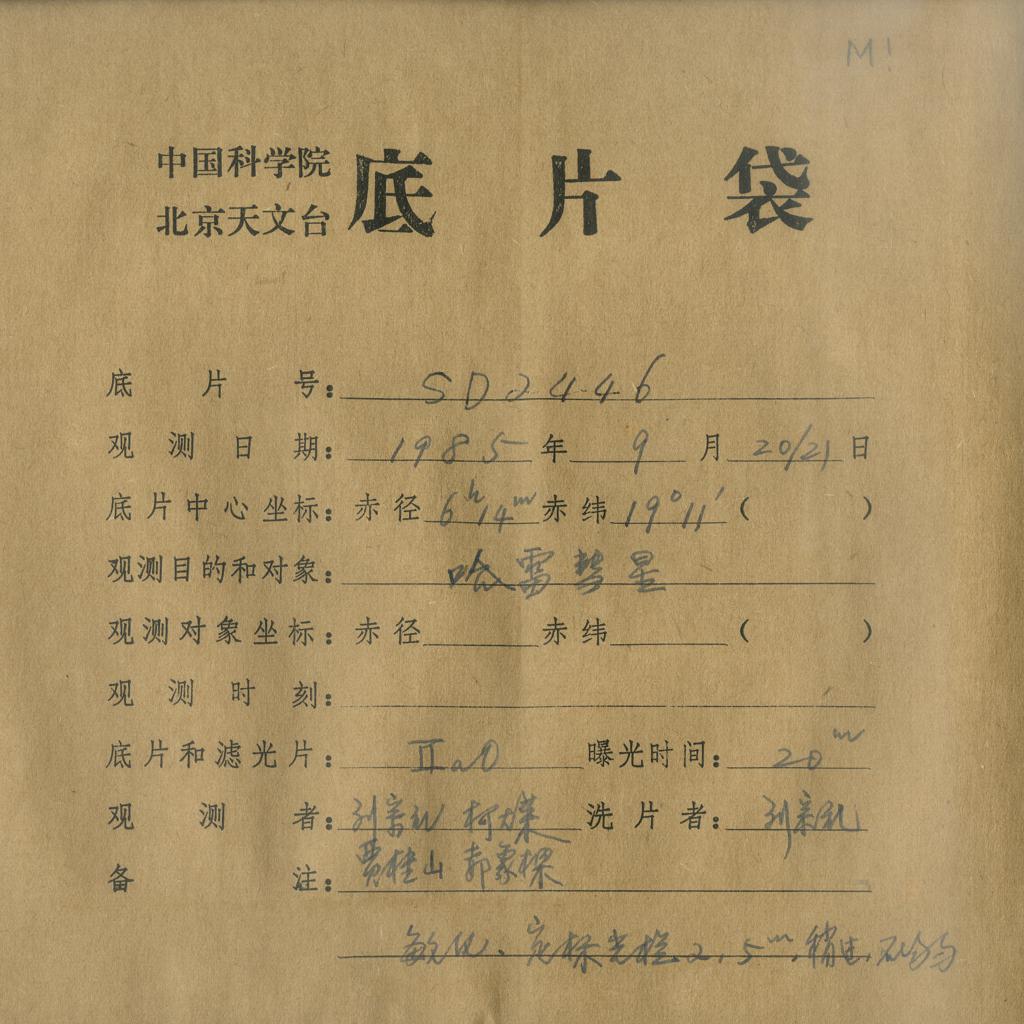 M!
中国科学院
北京天文台
底片袋
底片号：SD2446
观测日期：1985年9月20/21日
底片中心坐标：赤径6h14m赤纬19°11′（ ）
观测目的和对象：哈雷彗星
观测对象坐标：赤径 赤纬 （ ）
观测时刻：
底片和滤光片：ⅡaO 曝光时间：20m
观测者：刘宗礼 柯大荣 洗片者：刘宗礼
贾桂山 郭象樑
备注：
敏化、定标光楼2.5m,稍迷,不均匀